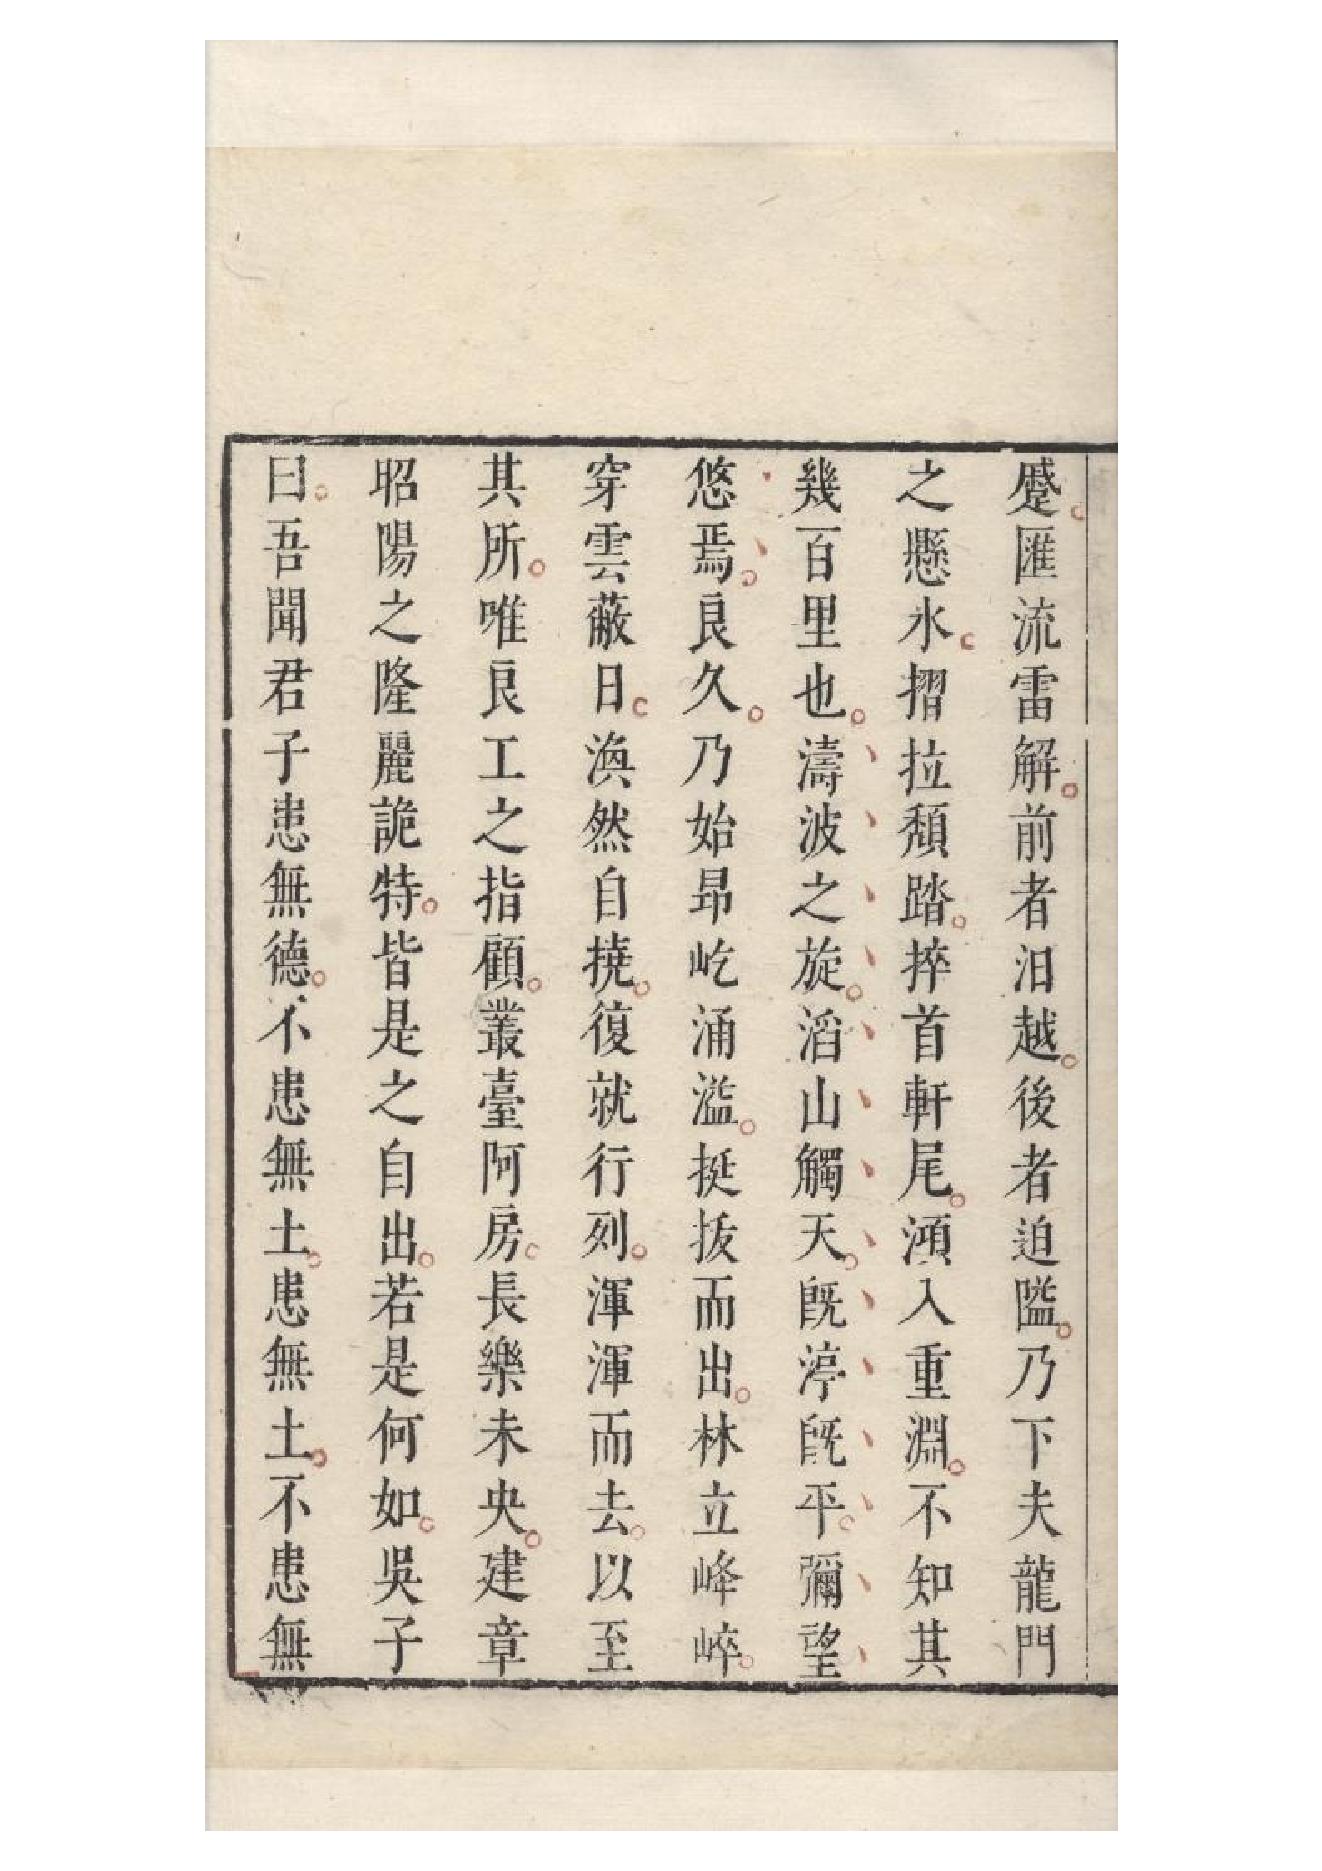 蹙匯流雷解前者汨越後者迫隘乃下夫龍門
之懸水摺拉頹踏捽首軒尾澒入重淵不知其
幾百里也濤波之旋滔山觸天既渟既平彌望
悠焉良久乃始昂屹涌溢挺拔而出林立峰崪
穿雲蔽日渙然自撓復就行列渾渾而去以至
其所唯良工之指顧叢臺阿房長樂未央建章
昭陽之隆麗詭特皆是之自出若是何如吳子
曰吾聞君子患無德不患無土患無土不患無